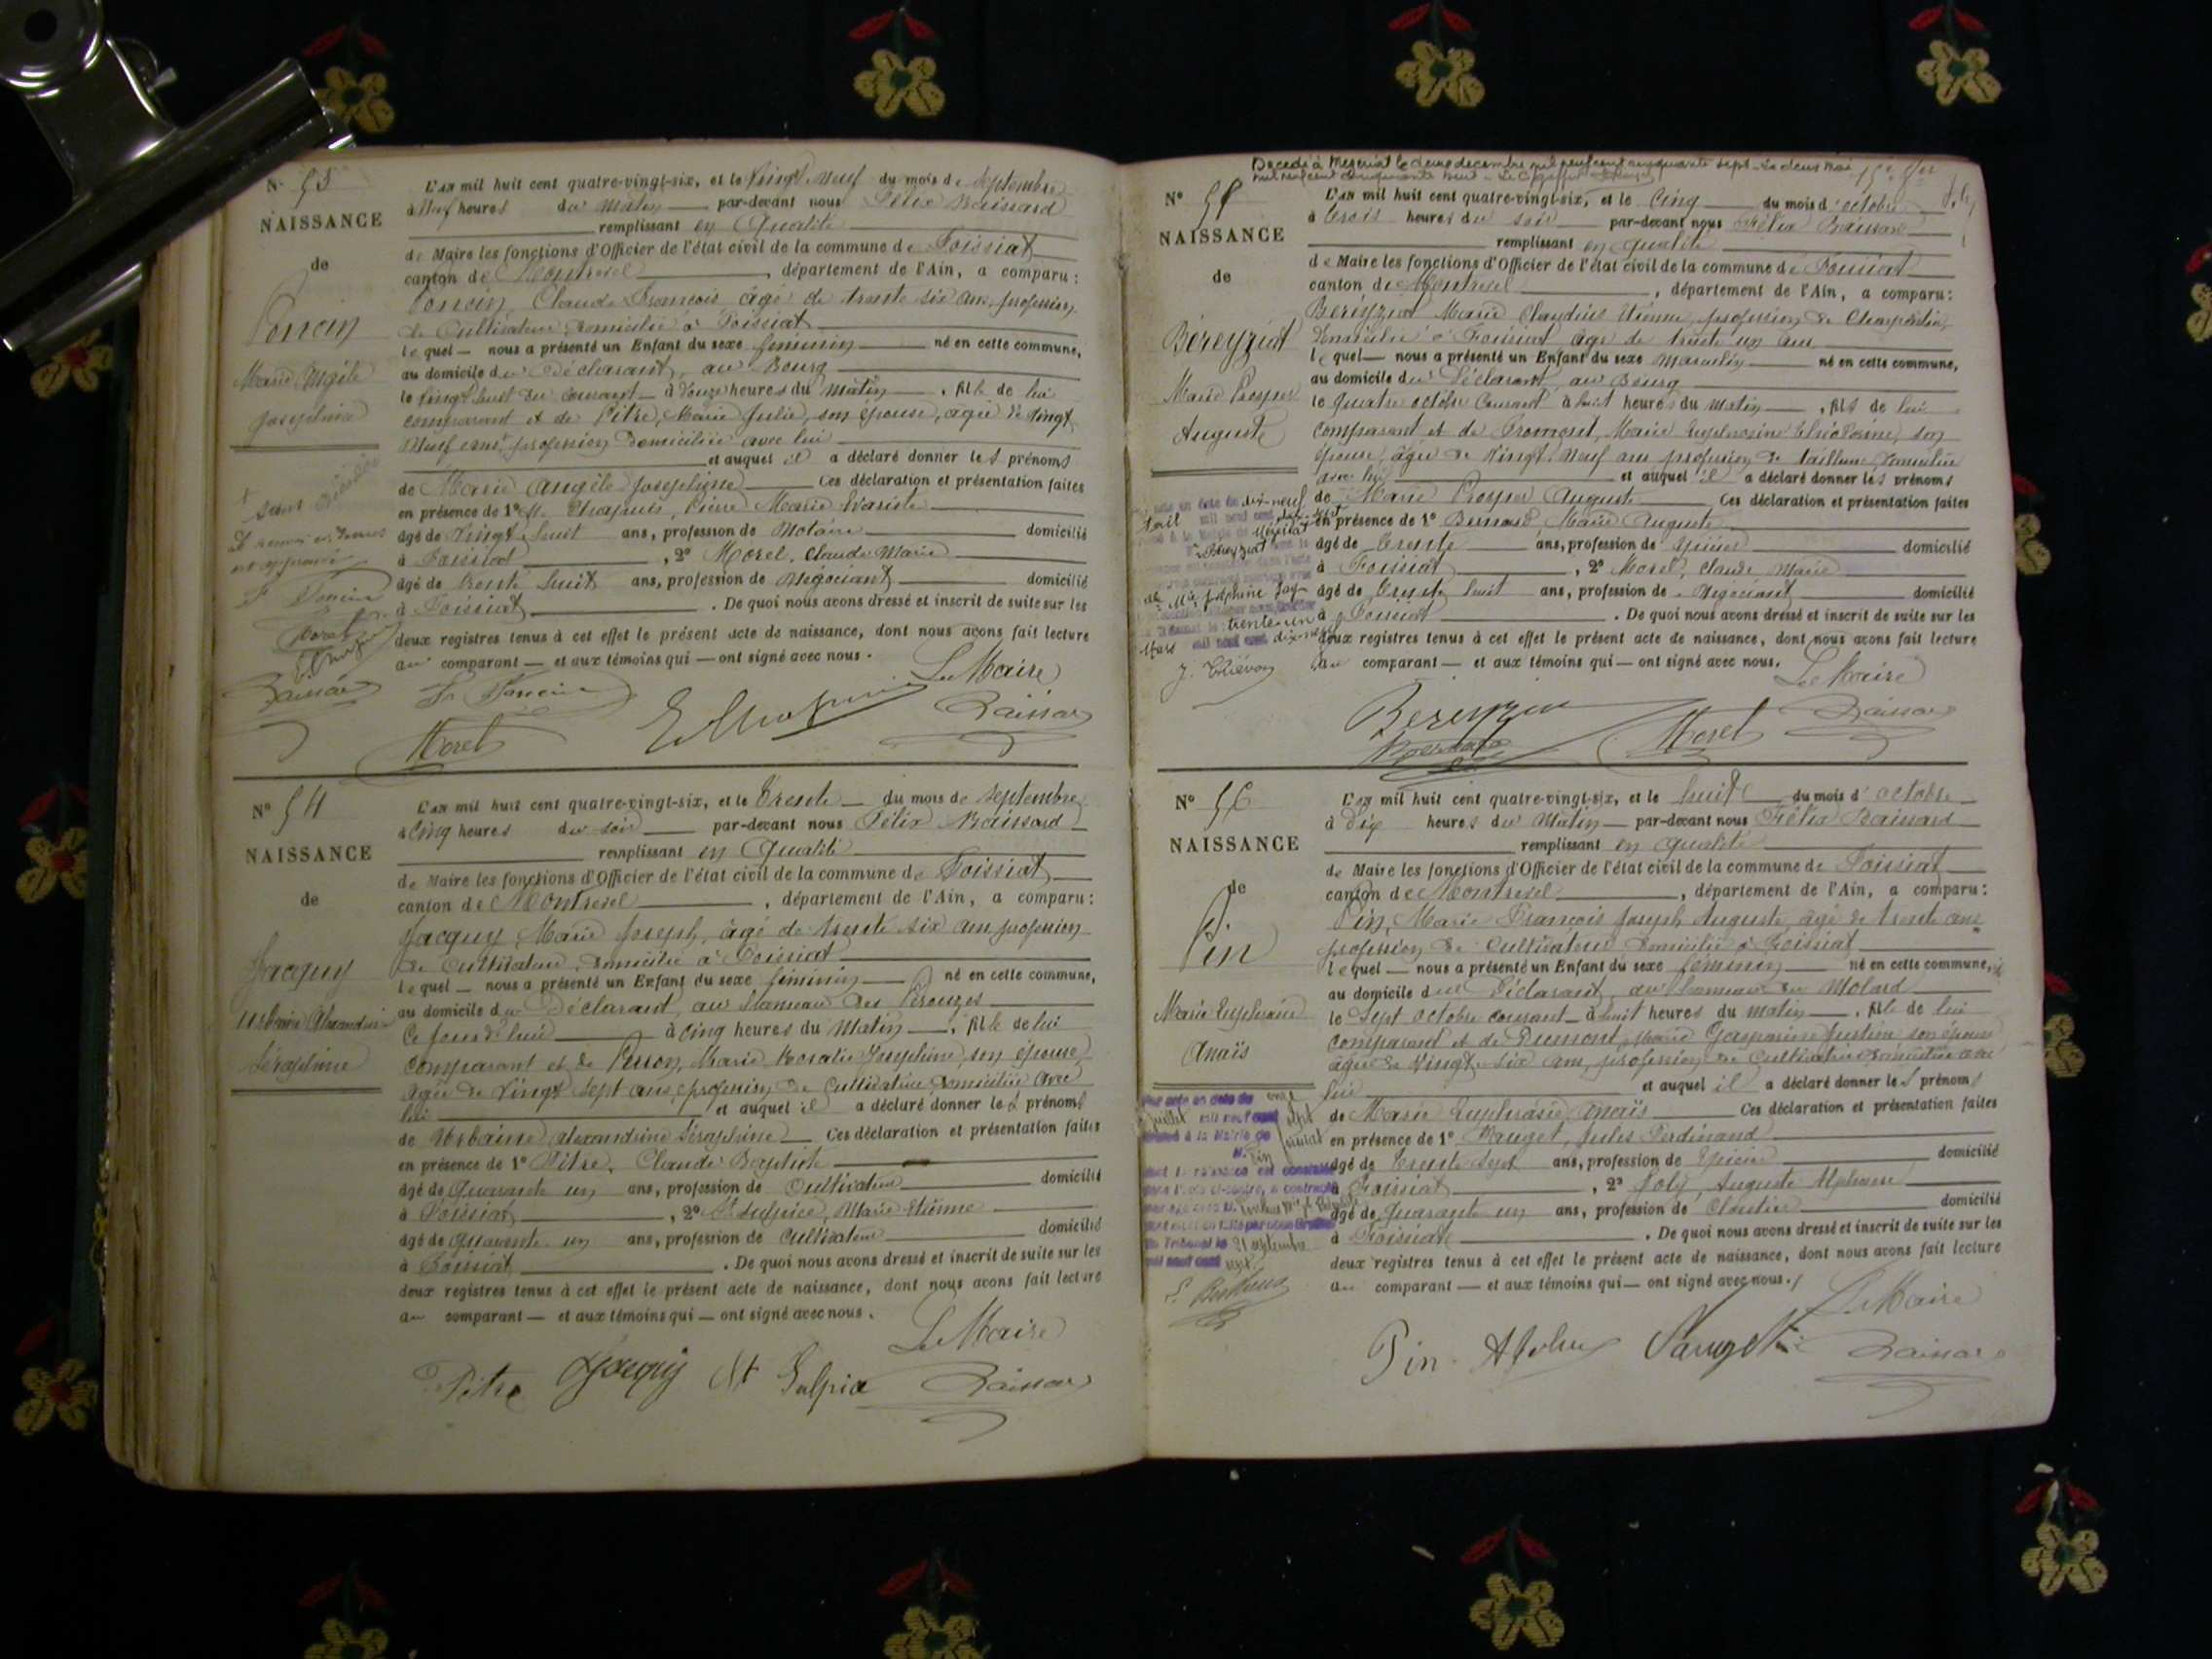 N° 53
NAISSANCE
de
Poncin
Marie Angèle
Joséphine
L'an mil huit cent quatre-vingt-six, et le vingt neuf du mois de septembre
à neuf heures du matin par-devant nous Félix Baissard
remplissant en qualité
de Maire les fonctions d'Officier de l'état civil de la commune de Foissiat
canton de Montrevel, département de l'Ain, a comparu :
Poncin, Claude François âgé de trente six ans, profession
de Cultivateur domicilié à Foissiat
lequel nous a présenté un Enfant du sexe féminin né en cette commune,
au domicile du Déclarant, au Bourg
le vingt huit du courant à douze heures du matin, fille de lui
comparant et de Pitre, Marie Julie, son épouse, âgée de vingt
neuf ans, profession domiciliée avec lui
et auquel il a déclaré donner les prénoms
de Marie Angèle Joséphine Ces déclaration et présentation faites
en présence de 1° M. Chapuis, Pierre Marie Evariste
âgé de vingt huit ans, profession de Notaire domicilié
à Foissiat, 2° Morel, Claude Marie
âgé de trente huit ans, profession de Négociant domicilié
à Foissiat. De quoi nous avons dressé et inscrit de suite sur les
deux registres tenus à cet effet le présent acte de naissance, dont nous avons fait lecture
au comparant et aux témoins qui ont signé avec nous.
Le Maire
Morel
Baissard
N° 54
NAISSANCE
de
Jacquy
Urbaine Alexandrine
Séraphine
L'an mil huit cent quatre-vingt-six, et le trente du mois de septembre
à cinq heures du soir par-devant nous Félix Baissard
remplissant en qualité
de Maire les fonctions d'Officier de l'état civil de la commune de Foissiat
canton de Montrevel, département de l'Ain, a comparu :
Jacquy, Marie Joseph, âgé de trente six ans profession
de Cultivateur, domicilié à Foissiat
lequel nous a présenté un Enfant du sexe féminin né en cette commune,
au domicile du Déclarant, au hameau des
ce jourd'hui à cinq heures du matin, fille de lui
comparant et de Marie Rosalie Joséphine, son épouse
âgée de vingt sept ans profession de cultivatrice domiciliée avec
lui et auquel il a déclaré donner les prénoms
de Urbaine Alexandrine Séraphine Ces déclaration et présentation faites
en présence de 1° Pitre, Claude Baptiste
âgé de quarante un ans, profession de Cultivateur domicilié
à Foissiat, 2° St Sulpice, Marie Etienne
âgé de quarante un ans, profession de cultivateur domicilié
à Foissiat. De quoi nous avons dressé et inscrit de suite sur les
deux registres tenus à cet effet le présent acte de naissance, dont nous avons fait lecture
au comparant et aux témoins qui ont signé avec nous.
Le Maire
Pitre Jacquy St Sulpice Baissard
Décédé à Mézériat le douze décembre mil neuf cent cinquante sept. Le deux mai
mil neuf cent cinquante huit
N° 55
NAISSANCE
de
Béreyziat
Marie Prosper
Auguste
L'an mil huit cent quatre-vingt-six, et le cinq du mois d'octobre
à trois heures du soir par-devant nous Félix Baissard
remplissant en qualité
de Maire les fonctions d'Officier de l'état civil de la commune de Foissiat
canton de Montrevel, département de l'Ain, a comparu :
Béreyziat Marie Claudius Etienne, profession de Charpentier,
domicilié à Foissiat âgé de trente un ans
lequel nous a présenté un Enfant du sexe masculin né en cette commune,
au domicile du Déclarant, au Bourg
le quatre octobre courant à huit heures du matin, fils de lui
comparant et de Fromont, Marie Euphrosine son
épouse, âgée de vingt neuf ans profession de tailleuse, domiciliée
avec lui et auquel il a déclaré donner les prénoms
de Marie Prosper Auguste Ces déclaration et présentation faites
en présence de 1° Bernard Marie Auguste
âgé de trente ans, profession de épicier domicilié
à Foissiat, 2° Morel, Claude Marie
âgé de trente huit ans, profession de Négociant domicilié
à Foissiat. De quoi nous avons dressé et inscrit de suite sur les
deux registres tenus à cet effet le présent acte de naissance, dont nous avons fait lecture
au comparant et aux témoins qui ont signé avec nous.
Le Maire
Béreyziat
Morel
Baissard
N° 56
NAISSANCE
de
Pin
Marie Euphrasie
Anaïs
L'an mil huit cent quatre-vingt-six, et le huit du mois d'octobre
à dix heures du matin par-devant nous Félix Baissard
remplissant en qualité
de Maire les fonctions d'Officier de l'état civil de la commune de Foissiat
canton de Montrevel, département de l'Ain, a comparu :
Pin, Marie François Joseph Auguste, âgé de trente ans
profession de Cultivateur domicilié à Foissiat
lequel nous a présenté un Enfant du sexe féminin né en cette commune,
au domicile du Déclarant, au hameau du Molard
le sept octobre courant à huit heures du matin, fille de lui
comparant et de Marie Gasparine Justine son épouse
âgée de vingt six ans, profession de cultivatrice domiciliée avec
lui et auquel il a déclaré donner les prénoms
de Marie Euphrasie Anaïs Ces déclaration et présentation faites
en présence de 1° Jules Ferdinand
âgé de trente sept ans, profession de épicier domicilié
à Foissiat, 2° Joly, Auguste Alphonse
âgé de quarante un ans, profession de domicilié
à Foissiat. De quoi nous avons dressé et inscrit de suite sur les
deux registres tenus à cet effet le présent acte de naissance, dont nous avons fait lecture
au comparant et aux témoins qui ont signé avec nous.
Le Maire
Pin
Baissard